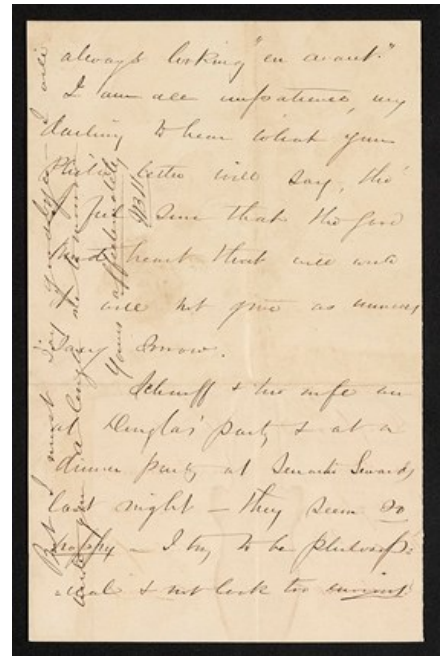 always looking "en avant."
I am all impatience, my
darling to hear what your
letter will say, tho'
I feel sure that the good
kind heart that will write
it will not give as
Schruff & his wife
at Douglas' party & at a
dinner party at Senator Sewards
last night – they seem so
happy – I try to be philosoph-
-ical & not look too
But I must say goodbye – I will
write you at length
Yours affectionately